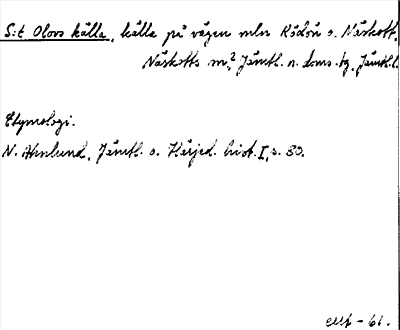 S:t Olovs källa, källa på vägen mln Rödön o. Näskott,
Näskotts sn, Jämtl. n. doms. tg, Jämtl. l.
Etymologi.
N. Ahnlund, Jämtl. o. Härjed. hist. I, s. 80.
-61.